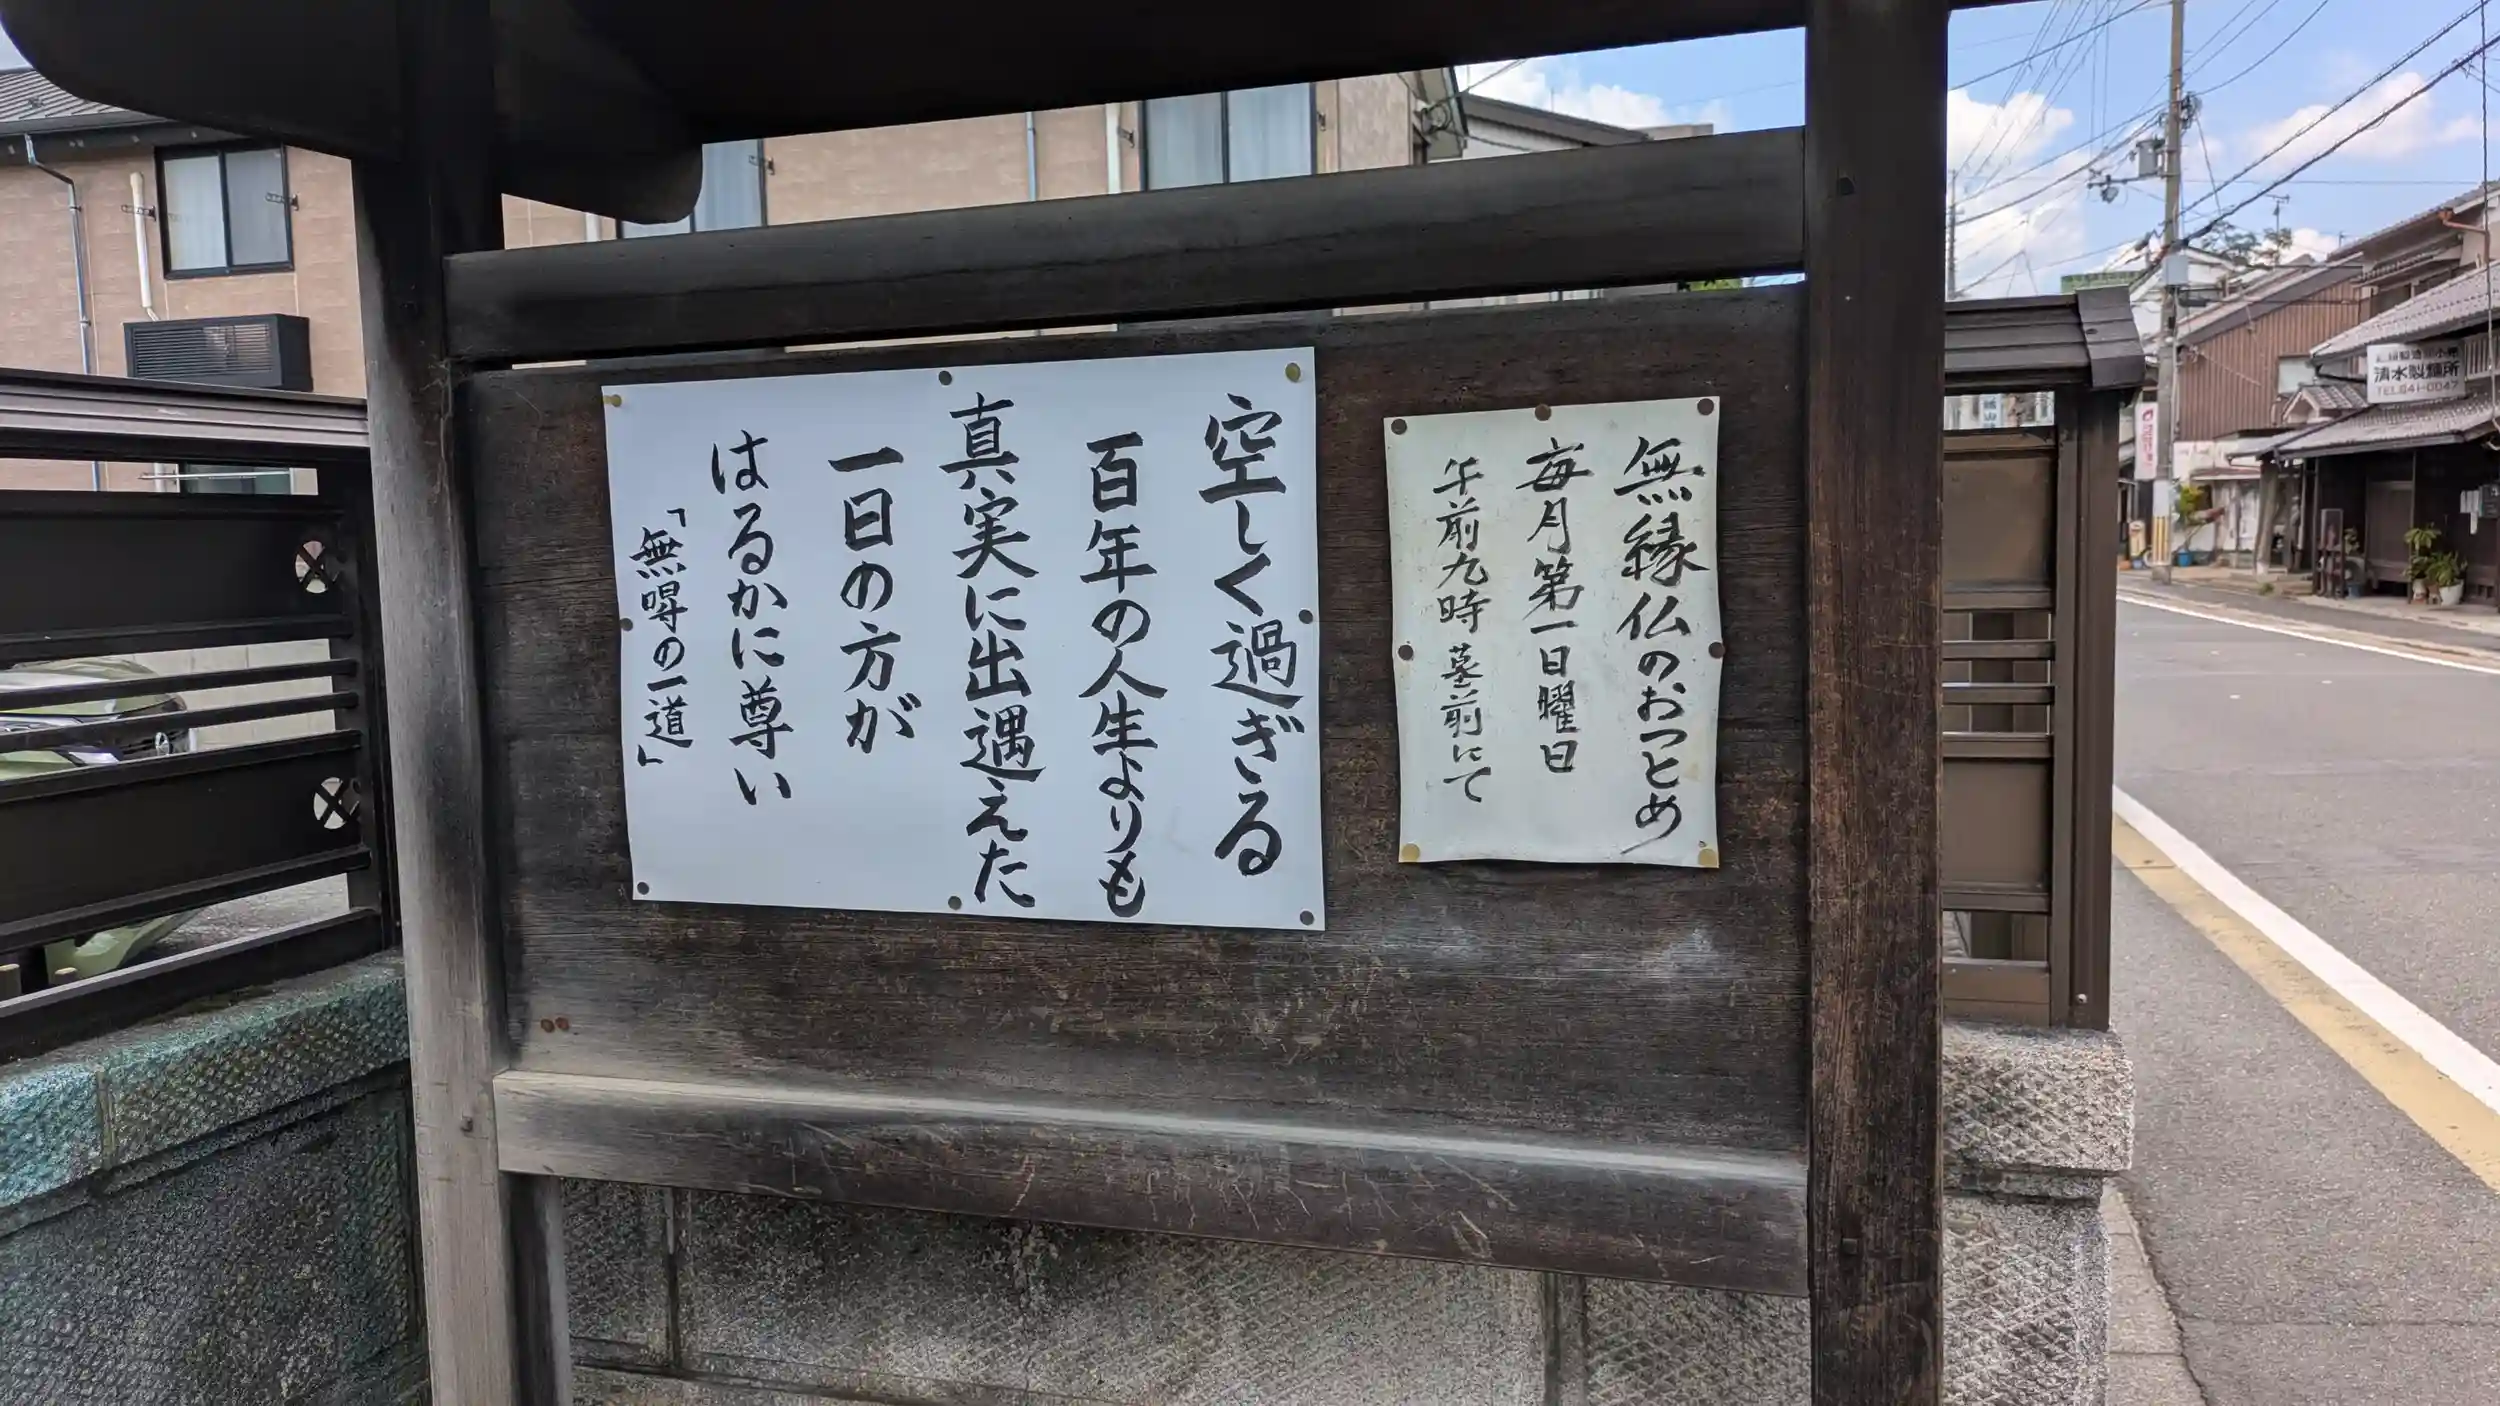 無縁仏のおつとめ
毎月第一日曜日
午前九時 墓前にて
空しく過ぎる
百年の人生よりも
真実に出遇えた
一日の方が
はるかに尊い
「無碍の一道」
清水製麺所
TEL641-0047